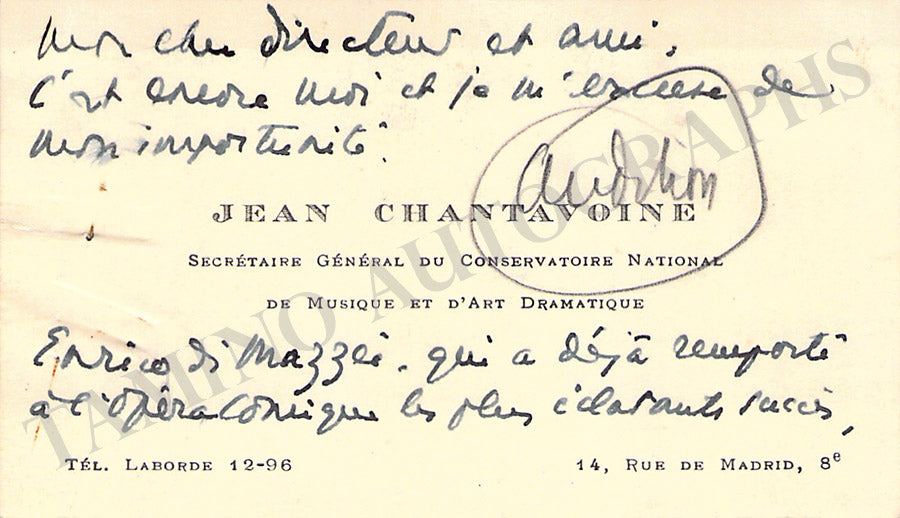 Mon cher directeur et ami,
C'est encore moi et je m'excuse de
mon importunité.
audition
JEAN CHANTAVOINE
SECRÉTAIRE GÉNÉRAL DU CONSERVATOIRE NATIONAL
DE MUSIQUE ET D'ART DRAMATIQUE
Enrico di Mazzei, qui a déjà remporté
à l'Opéra Comique les plus éclatants succès,
TÉL. LABORDE 12-96
14, RUE DE MADRID, 8e
TAMINO AUTOGRAPHS